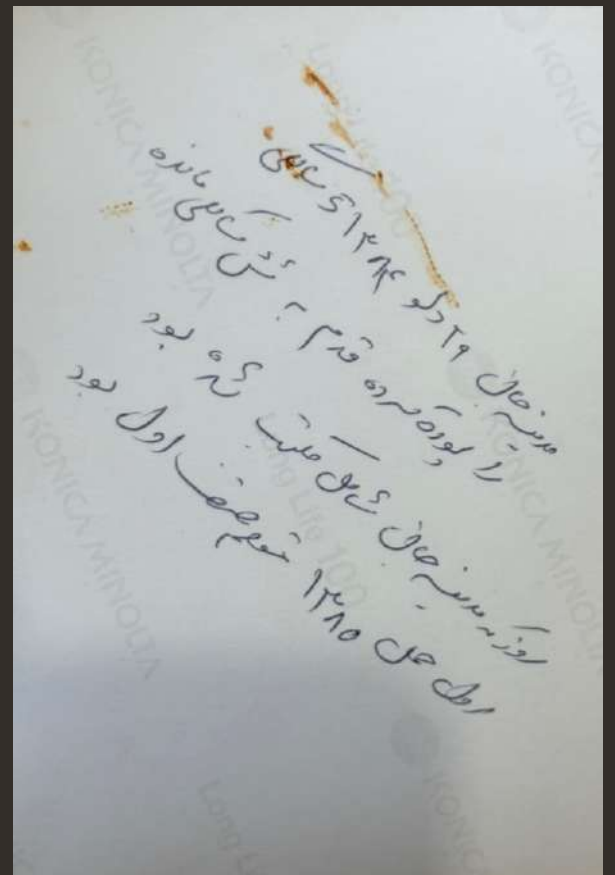 مدینه جان ۲۹ دلو ۱۳۸۴ ۵ سالگی
را پوره کرده قدم به شش سالگی مانده
روز که مدینه جان شامل مکتب شده بود
اول حمل ۱۳۸۵ متعلم صنف اول بود
KONICA MINOLTA
Long Life 100